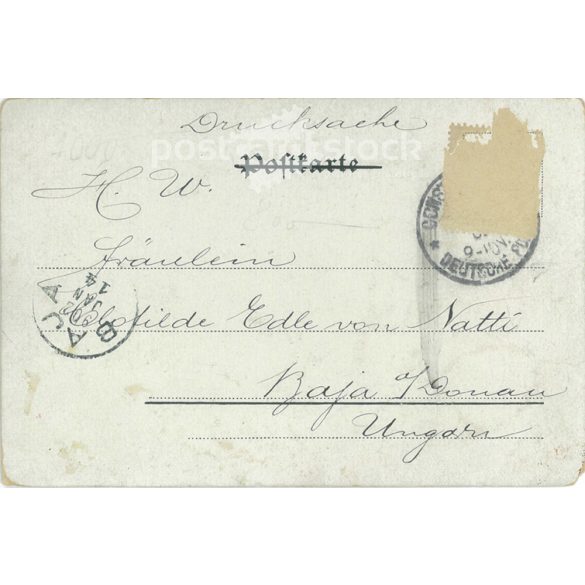 Drucksache
Postkarte
H. W.
Fräulein
Clotilde Edle von Natti
Baja / Donau
Ungarn
BAJA
902
JAN
14
9-10V.
DEUTSCHE